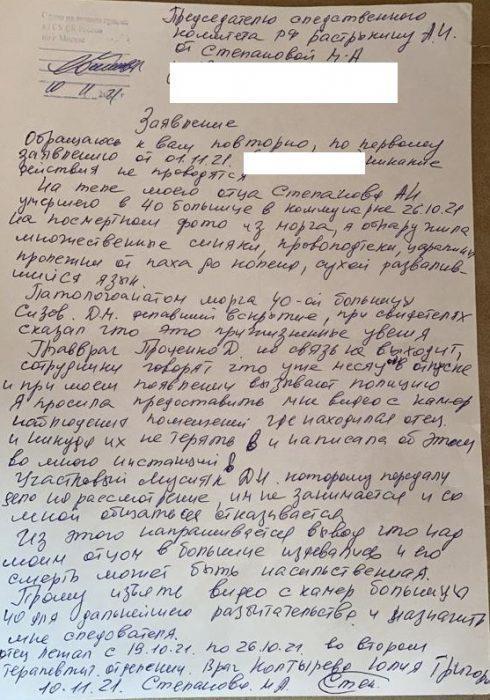 г. Москве
10 11 21
Председателю следственного
комитета РФ Бастрыкину А.И.
от Степановой Н.А
Заявление
Обращаюсь к вам повторно, по первому
заявлению от 01.11.21. никакие
действия не проводятся
На теле моего отца Степанова А.И
умершего в 40 больнице в коммунарке 26.10.21
на посмертном фото из морга, я обнаружила
множественные синяки, кровоподтеки, царапины
пролежни от паха до колено, сухой развалив-
шийся язык.
Патологоанатом морга 40-ой больницы
Сизов. Д.Н. делавший вскрытие, при свидетелях
сказал что это прижизненные увечия
Главврач Проценко Д. на связь не выходит,
сотрудники говорят что уже месяц в отпуске
и при моем появлении вызывают полицию
Я просила предоставить мне видео с камер
наблюдения помещений где находился отец.
и никуда их не терять и написала об этом
во много инстанций!
Участковый Мусияк Д.И. которому передали
дело на рассмотрение, им не занимается и со
мной общаться отказывается
Из этого напрашивается вывод что над
моим отцом в больнице издевались и его
смерть может быть насильственная.
Прошу изъять видео с камер больницы
40 для дальнейшего разбительство и назначить
мне следователя.
отец лежал с 19.10.21 по 26.10.21 во втором
терапевтич. отделении. Врач Колтырева Юлия Григор
10.11.21. Степанова Н.А